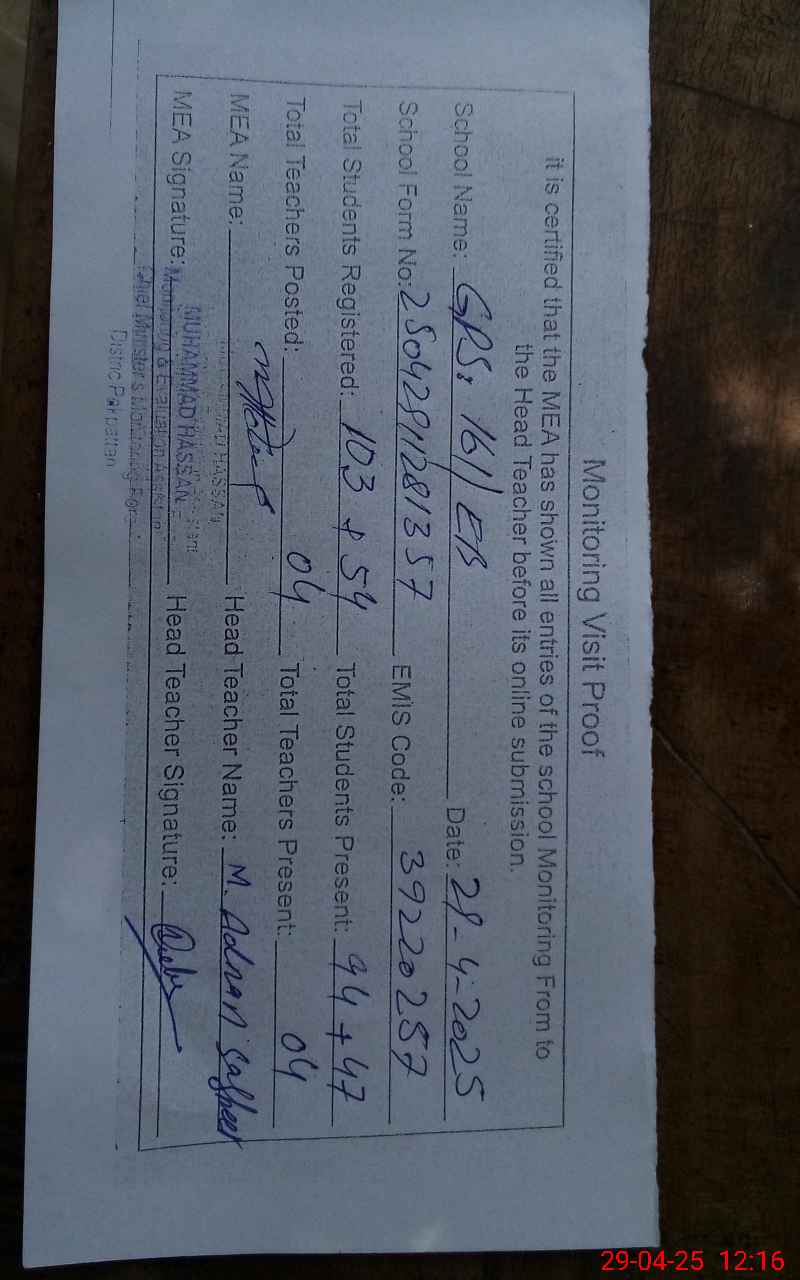 Monitoring Visit Proof
it is certified that the MEA has shown all entries of the school Monitoring From to
the Head Teacher before its online submission.
School Name: GPS, 161/EB Date: 29-4-2025
School Form No: 2504291281357 EMIS Code: 39220257
Total Students Registered: 103 + 54 Total Students Present: 94 + 47
Total Teachers Posted: 04 Total Teachers Present: 04
MEA Name: Head Teacher Name: M. Adnan
MEA Signature: Head Teacher Signature:
MUHAMMAD HASSAN
Monitoring & Evaluation Assistant
Chief Minister's Monitoring
District Pakpattan
29-04-25 12:16